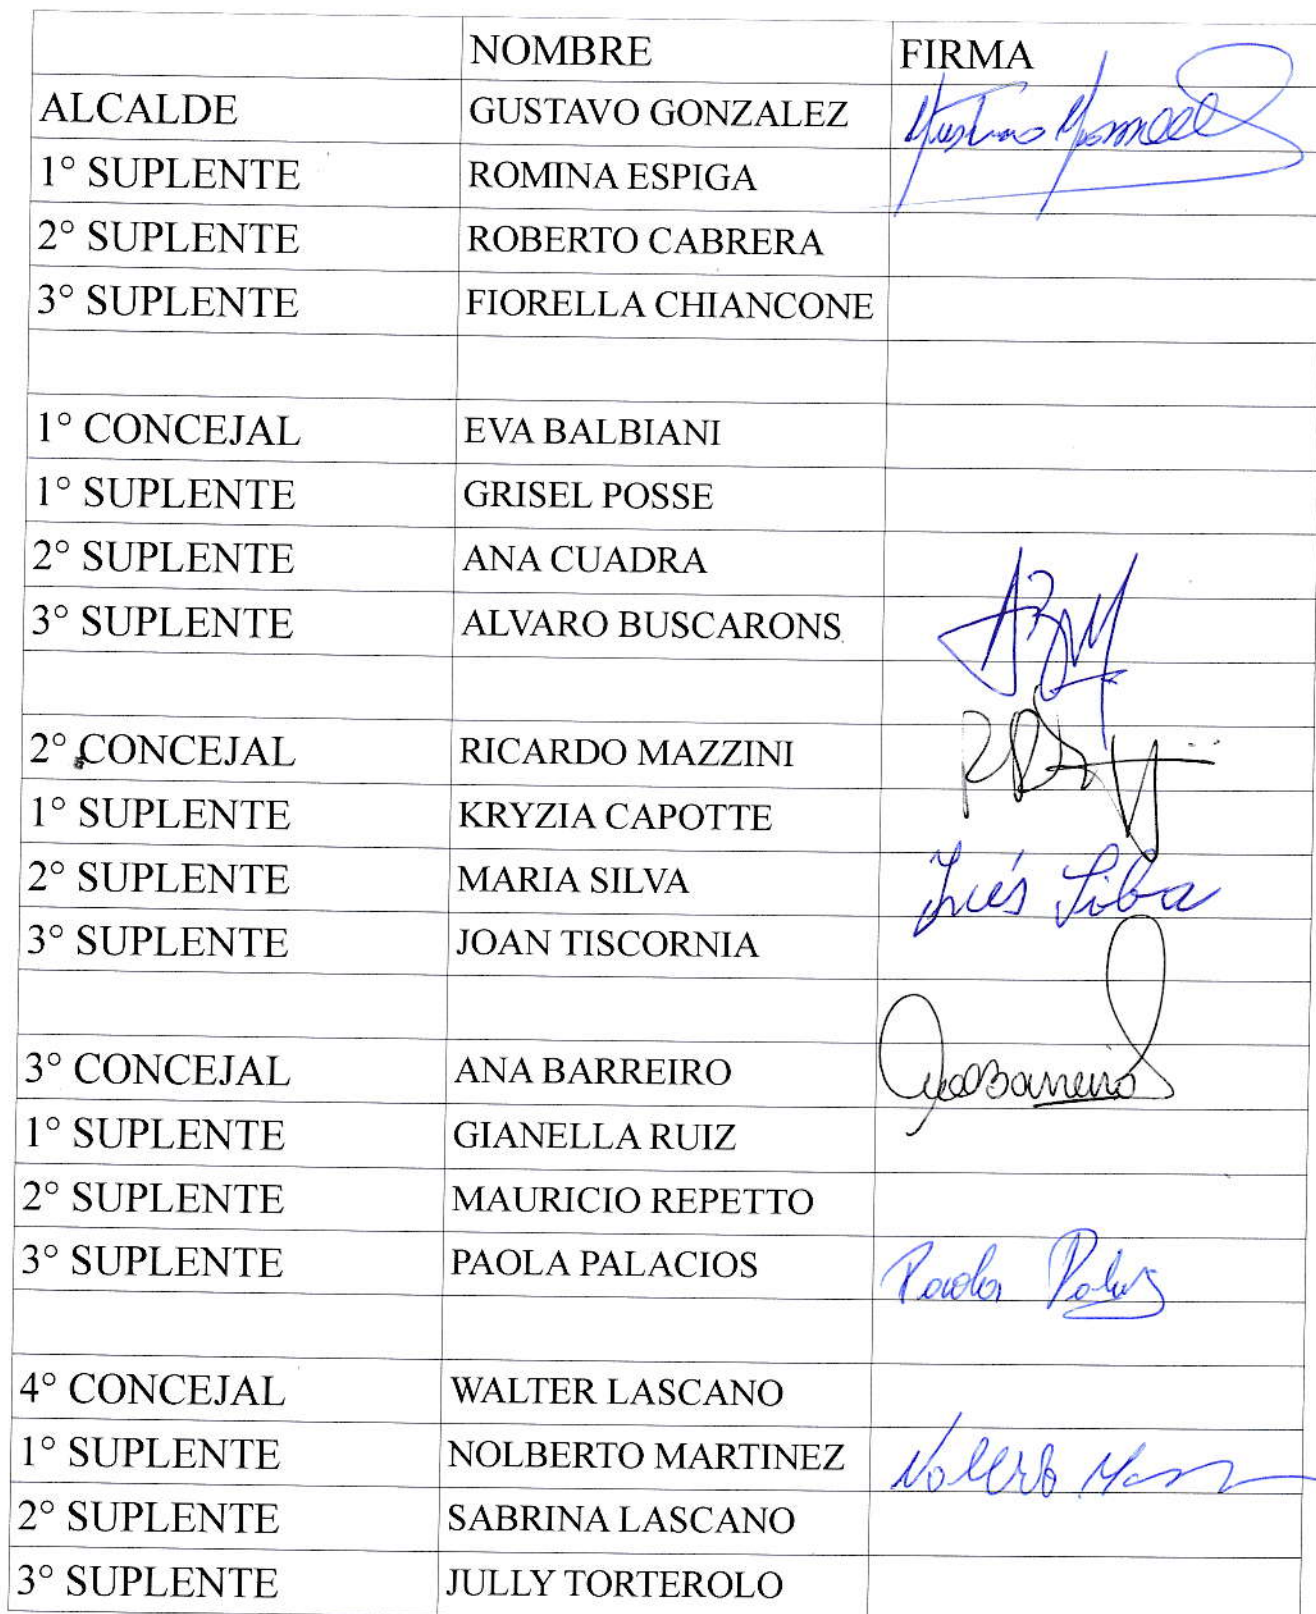 NOMBRE FIRMA
ALCALDE GUSTAVO GONZALEZ
1° SUPLENTE ROMINA ESPIGA
2° SUPLENTE ROBERTO CABRERA
3° SUPLENTE FIORELLA CHIANCONE
1° CONCEJAL EVA BALBIANI
1° SUPLENTE GRISEL POSSE
2° SUPLENTE ANA CUADRA
3° SUPLENTE ALVARO BUSCARONS
2° CONCEJAL RICARDO MAZZINI
1° SUPLENTE KRYZIA CAPOTTE
2° SUPLENTE MARIA SILVA Inés Silva
3° SUPLENTE JOAN TISCORNIA
3° CONCEJAL ANA BARREIRO AnaBarreiro
1° SUPLENTE GIANELLA RUIZ
2° SUPLENTE MAURICIO REPETTO
3° SUPLENTE PAOLA PALACIOS Paola
4° CONCEJAL WALTER LASCANO
1° SUPLENTE NOLBERTO MARTINEZ Nolberto
2° SUPLENTE SABRINA LASCANO
3° SUPLENTE JULLY TORTEROLO